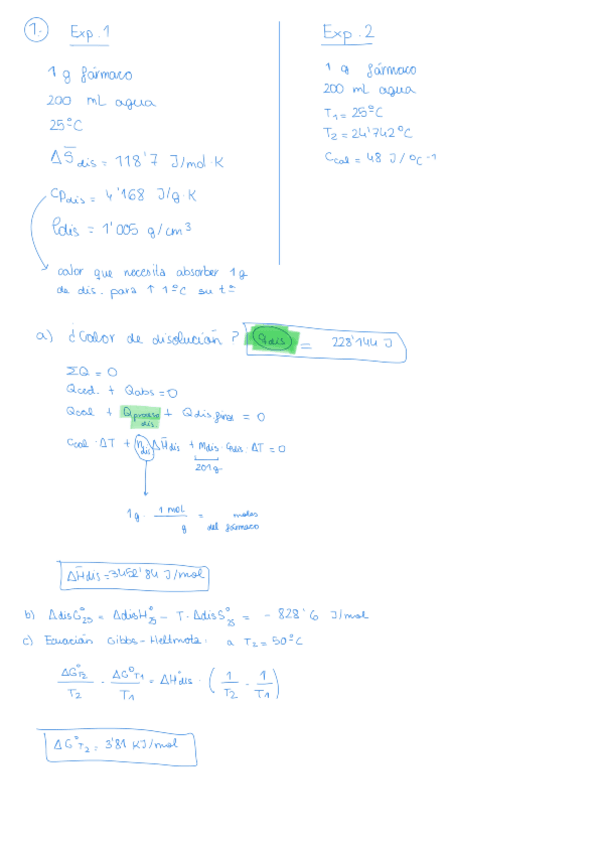 1. Exp. 1
1 g fármaco
200 mL agua
25ºC
ΔS̅dis = 118'7 J/mol·K
CPdis = 4'168 J/g·K
ρdis = 1'005 g/cm³
calor que necesita absorber 1g
de dis. para ↑ 1ºC su tª
Exp. 2
1 g fármaco
200 mL agua
T1 = 25ºC
T2 = 24'742ºC
Ccal = 48 J/ºC⁻¹
a) ¿Calor de disolución? Qdis = 228'144 J
ΣQ = 0
Qced. + Qabs = 0
Qcal + Qproceso dis. + Qdis final = 0
Ccal · ΔT + ndis ΔH̅dis + mdis · Cdis · ΔT = 0
201g
1g · 1 mol / g = moles del fármaco
ΔH̅dis = 3452'84 J/mol
b) ΔdisG°25 = ΔdisH°25 - T · ΔdisS°25 = - 828'6 J/mol
c) Ecuación Gibbs-Hellmotz. a T2 = 50ºC
ΔG°T2 / T2 - ΔG°T1 / T1 = ΔH°dis · (1/T2 - 1/T1)
ΔG°T2 = 3'81 KJ/mol